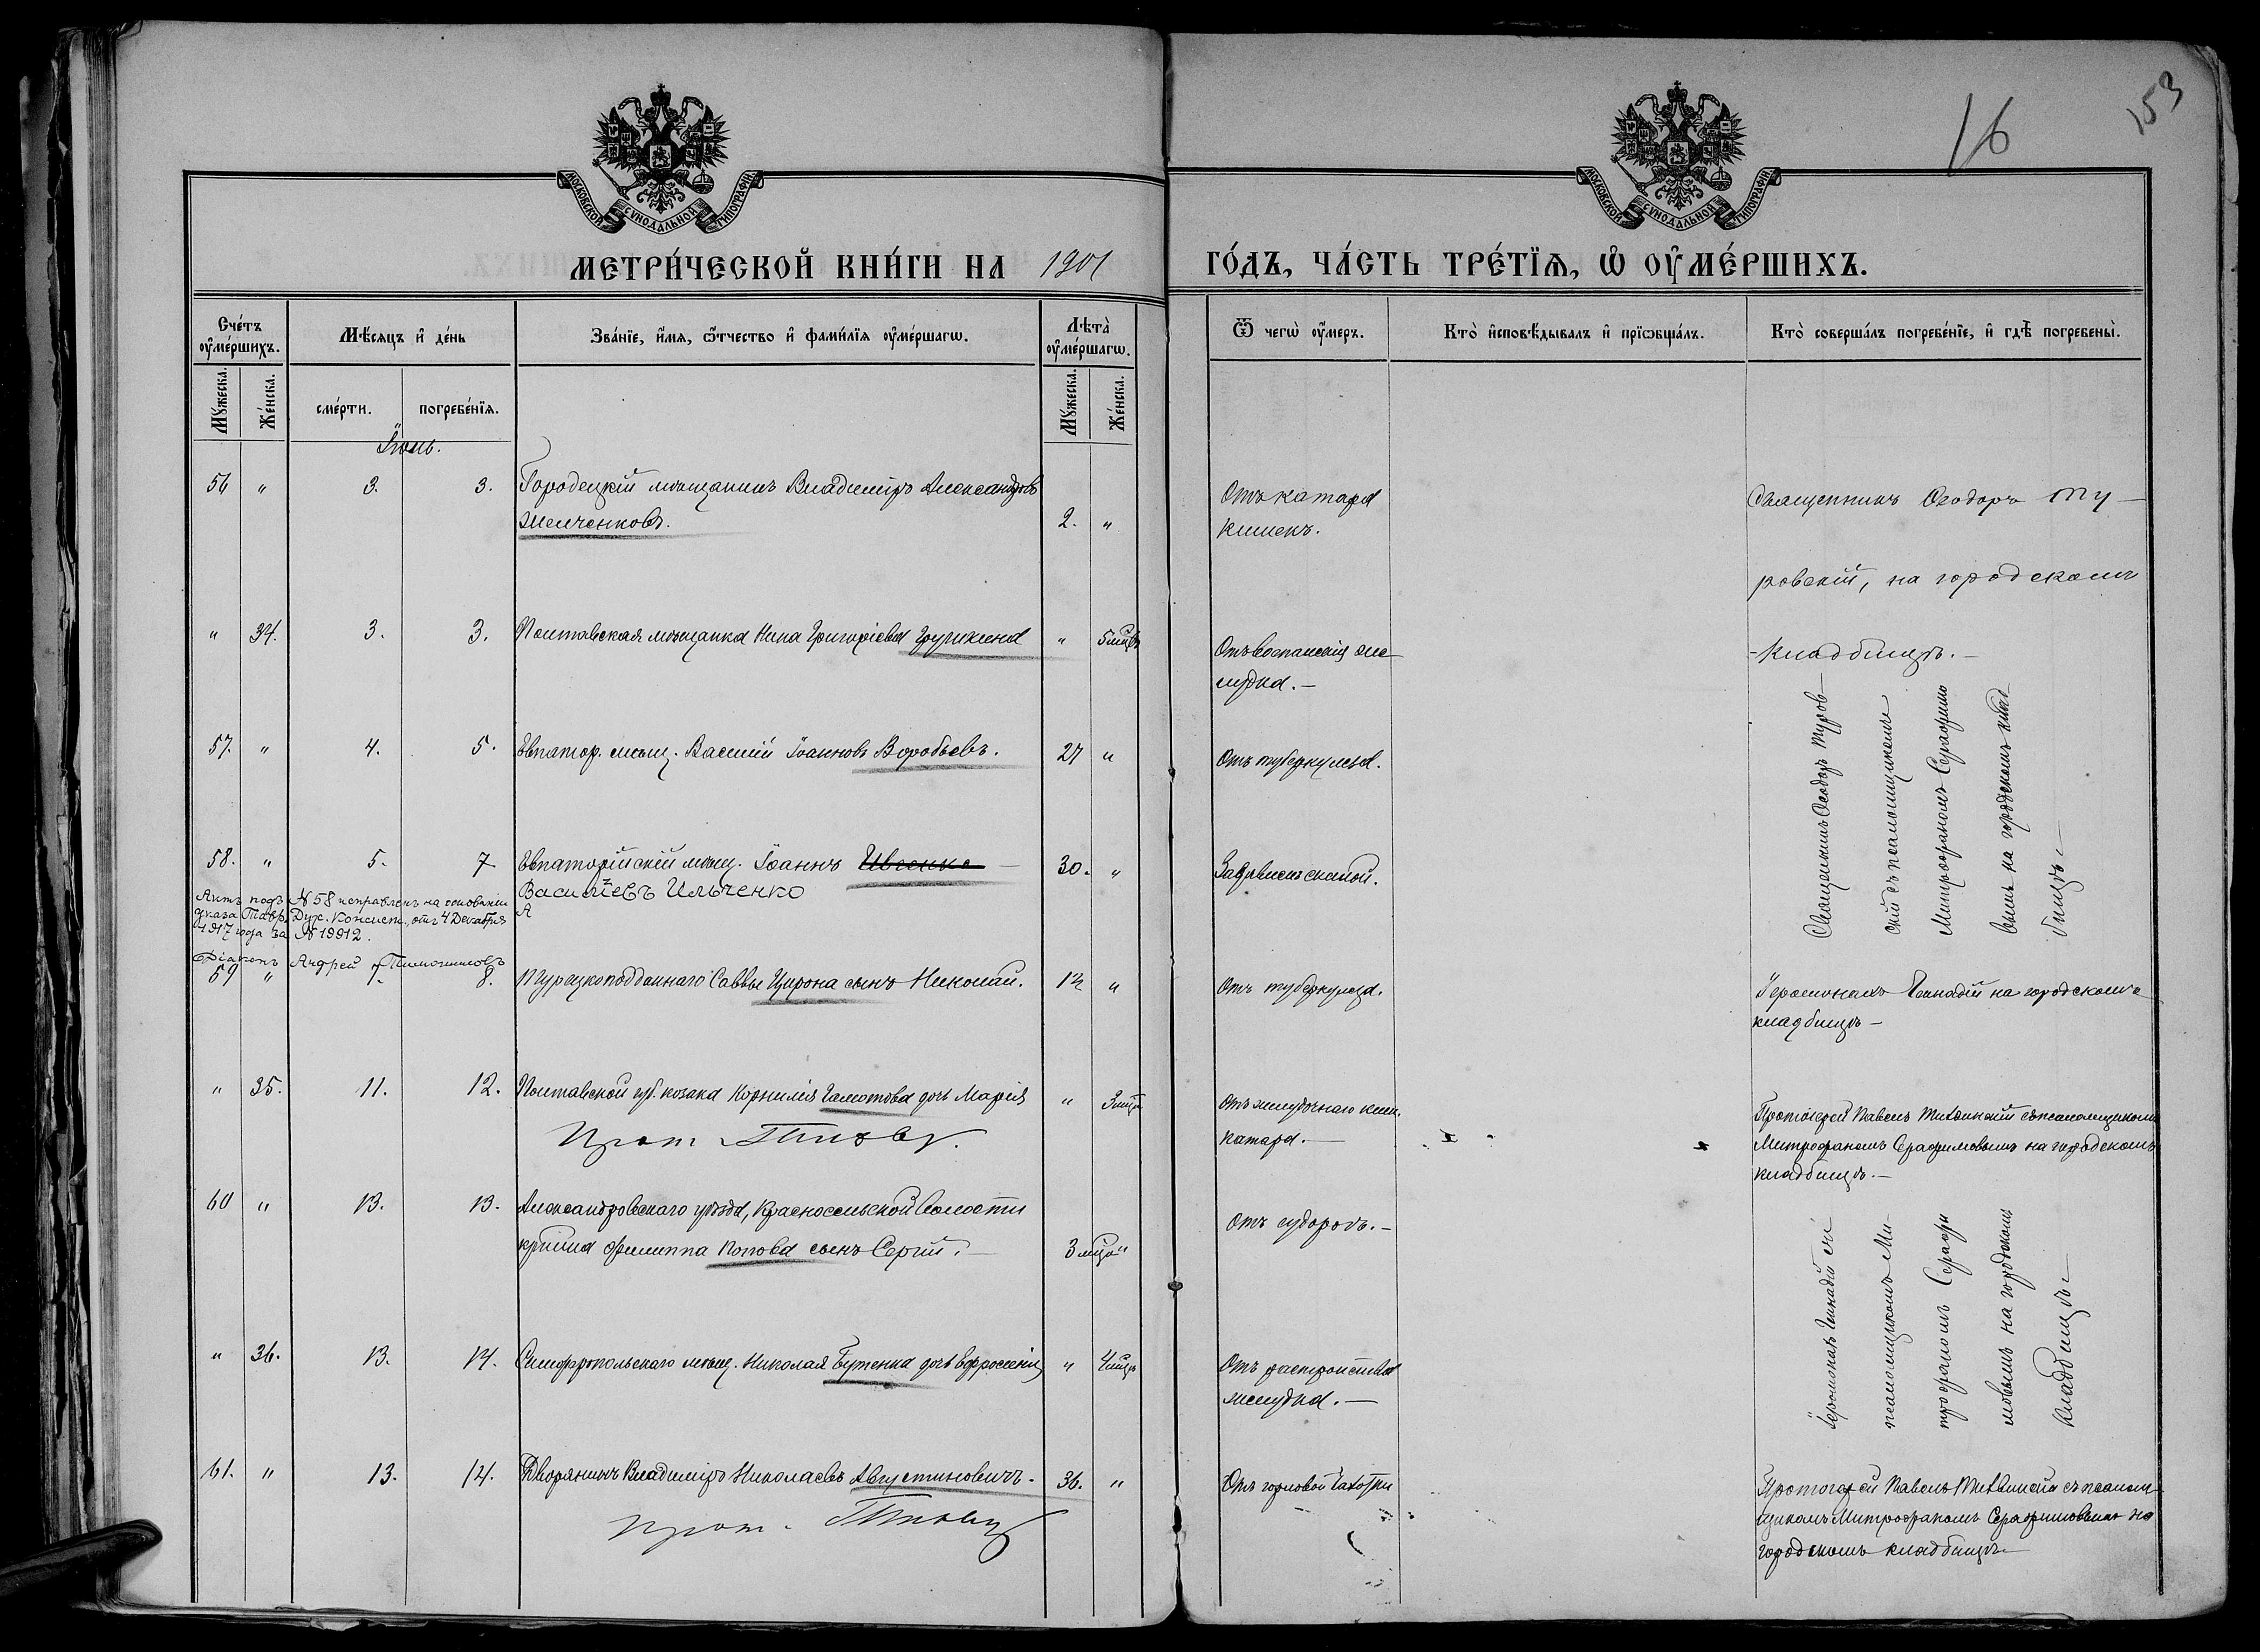 16
153
МОСКОВСКОЙ СѴНОДАЛЬНОЙ ТИПОГРАФІИ
МОСКОВСКОЙ СѴНОДАЛЬНОЙ ТИПОГРАФІИ
МЕТРИ́ЧЕСКОЙ КНИ́ГИ НА 1901
ГО́ДЪ, ЧА́СТЬ ТРЕ́ТЇѦ, Ѡ҆ ОУ҆МЕ́РШИХЪ.
Сче́тъ оу҆ме́ршихъ.
Мѣ́сѧцъ и҆ де́нь
Зва́нїе, и҆́мѧ, ѻ҆́тчество и҆ фами́лїѧ оу҆ме́ршагѡ.
Лѣ́та оу҆ме́ршагѡ.
Ѿ чегѡ̀ оу҆́меръ.
Кто̀ и҆сповѣ́дывалъ и҆ прїѡбща́лъ.
Кто̀ соверша́лъ погребе́нїе, и҆ гдѣ̀ погребены̀.
Мꙋ́жеска. Же́нска.
сме́рти. погребе́нїѧ.
Мꙋ́жеска. Же́нска.
Іюль.
56 " 3. 3. Городецкій мѣщанинъ Владиміръ Александровъ
2. "
Отъ катара
кишекъ.
Священникъ Ѳеодоръ Ту-
ровскій, на городскомъ
кладбищѣ.-
" 34. 3. 3. Полтавская мѣщанка Нина Григоріева
" 5 мѣцъ
Отъ воспаленія же-
лудка.-
57. " 4. 5. Евпатор. мѣщ. Василій Іоанновъ Воробьевъ.
27 "
Отъ туберкулеза.
Священникъ Ѳеодоръ Туров-
скій съ псаломщикомъ
Митрофаномъ Серафимо
вымъ на городскомъ клад-
бищѣ.-
58. " 5. 7 Евпаторійскій мѣщ. Іоаннъ Ивсенко
Василіевъ Ильченко
30. "
Актъ подъ № 58 исправленъ на основаніи
указа Тавр. Дух. Консист., отъ 4 Декабря
1917 года за № 19912.
Діаконъ Андрей
59 " 7. 8. Турецкоподданнаго Саввы Цирона сынъ Николай.
12 "
Отъ туберкулеза.
Іеромонахъ Геннадій на городскомъ
кладбищѣ-
" 35. 11. 12. Полтавской губ. козака Корнилія Гамотова дочь Марія
" 3 мѣц.
Прот.
Отъ желудочнаго киш.
катара.-
Протоіерей Павелъ Тихвинскій съ псаломщикомъ
Митрофаномъ Серафимовымъ на городскомъ
кладбищѣ.-
60 " 13. 13. Александровскаго уѣзда, Красносельской Волости
кр-нина Филиппа Попова сынъ Сергій.-
3 мѣц. "
Отъ судорогъ.-
Іеромонахъ Геннадій съ
псаломщикомъ Ми-
трофаномъ Серафи
мовымъ на городскомъ
кладбищѣ-
" 36. 13. 14. Симферопольскаго мѣщ. Николая Бутенка дочь Ефросинія
" 4 мѣц.
Отъ растройства
желудка.-
61. " 13. 14. Дворянинъ Владиміръ Николаевъ Августиновичъ.
36. "
Прот.
Отъ горловой чахотки
Протоіерей Павелъ Тихвинскій съ псалом-
щикомъ Митрофаномъ Серафимовымъ на
городскомъ кладбищѣ-